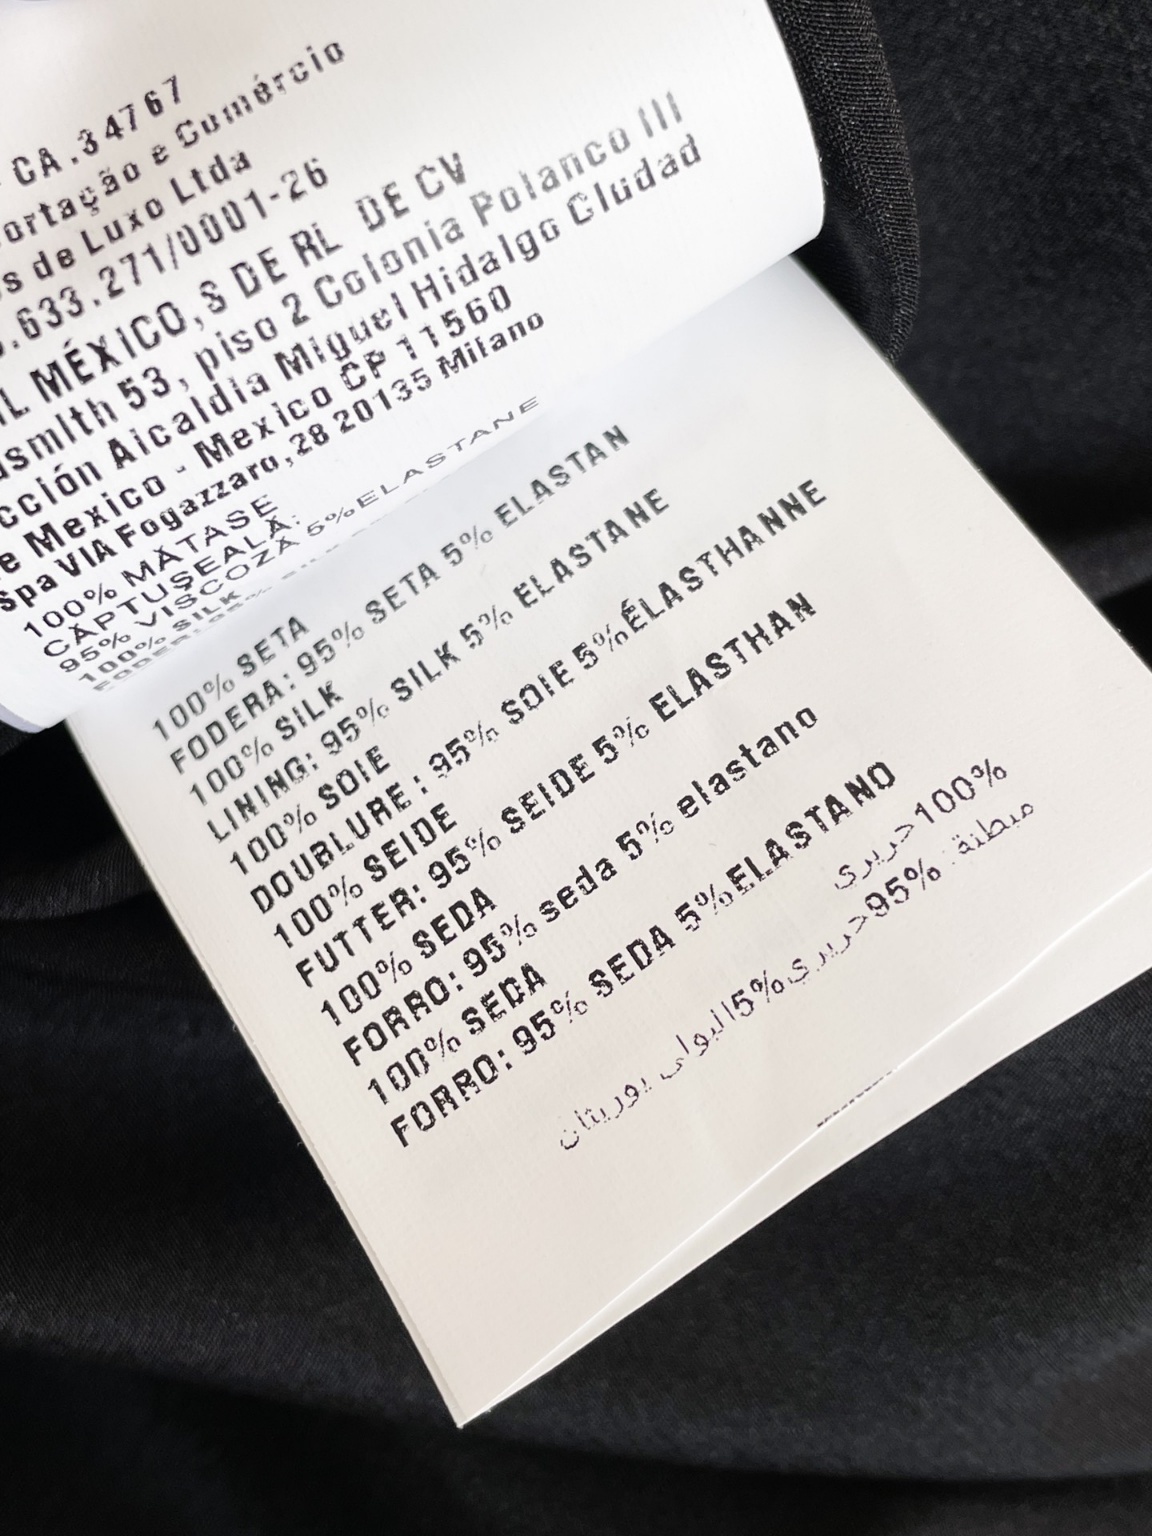 CA.34767
ortação e Comércio
s de Luxo Ltda
.633.271/0001-26
MÉXICO,S DE RL DE CV
53, piso 2 Colonia Polanco III
cción Alcaldía Miguel Hidalgo Ciudad
e Mexico - Mexico CP 11560
Spa VIA Fogazzaro,28 20135 Milano
100% MĂTASE
CĂPTUȘEALĂ:
95% VISCOZĂ 5%ELASTANE
100% SILK
100% SETA
FODERA: 95% SETA 5% ELASTAN
100% SILK
LINING: 95% SILK 5% ELASTANE
100% SOIE
DOUBLURE : 95% SOIE 5%ÉLASTHANNE
100% SEIDE
FUTTER: 95% SEIDE 5% ELASTHAN
100% SEDA
FORRO: 95% seda 5% elastano
100% SEDA
FORRO: 95% SEDA 5%ELASTANO
100%حريري
مبطنة: 95%حريري5%اليواى يوريثان